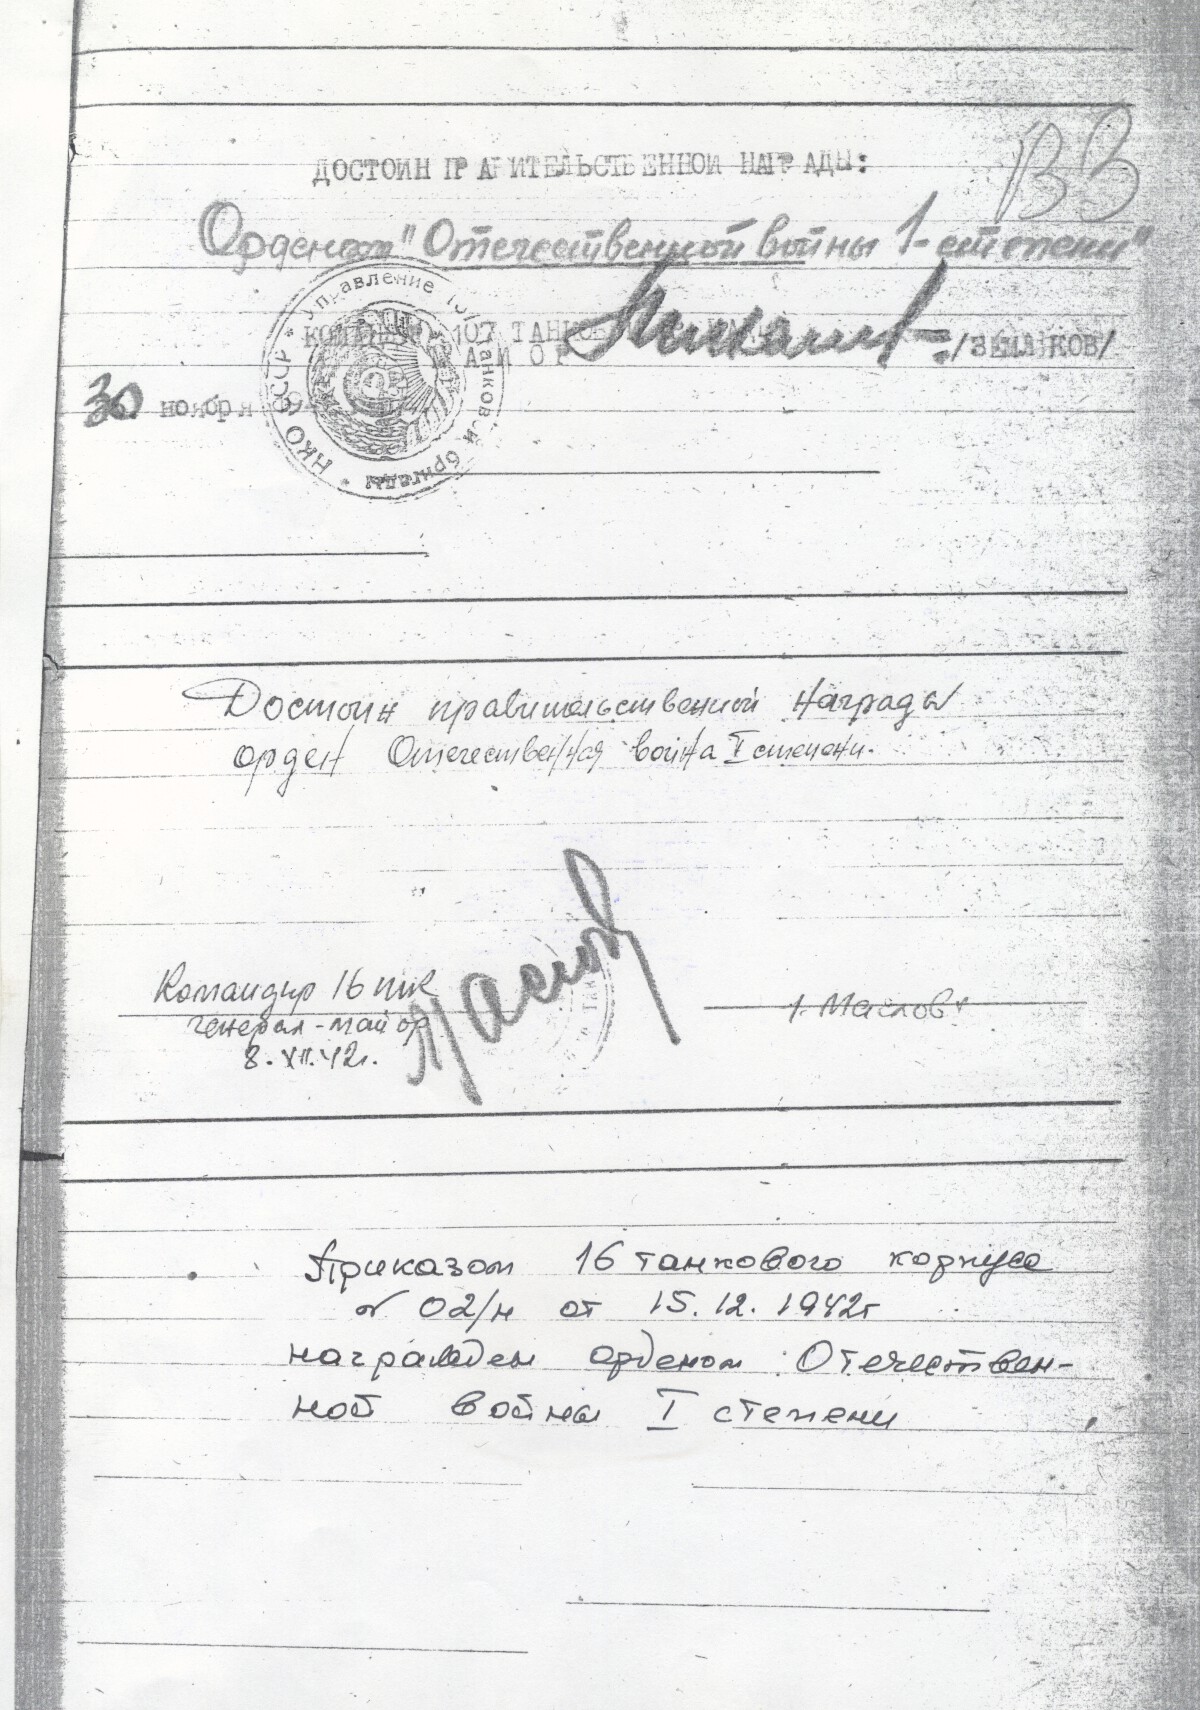 ВЗ
ДОСТОИН ПРАВИТЕЛЬСТВЕННОЙ НАГРАДЫ:
Орденом "Отечественной войны 1-степени"
КОМАНДИР 107 ТАНКОВ
МАЙОР /ЗЕМЛЯКОВ/
30 ноября 194
НКО СССР * Управление 107 Танковой бригады *
Достоин правительственной награды
орден Отечественная война I степени.
Командир 16 тк
генерал-майор Маслов /. Маслов
8.XII.42г.
Приказом 16 танкового корпуса
№ 02/н от 15.12.1942г
награжден орденом Отечествен-
ной войны I степени